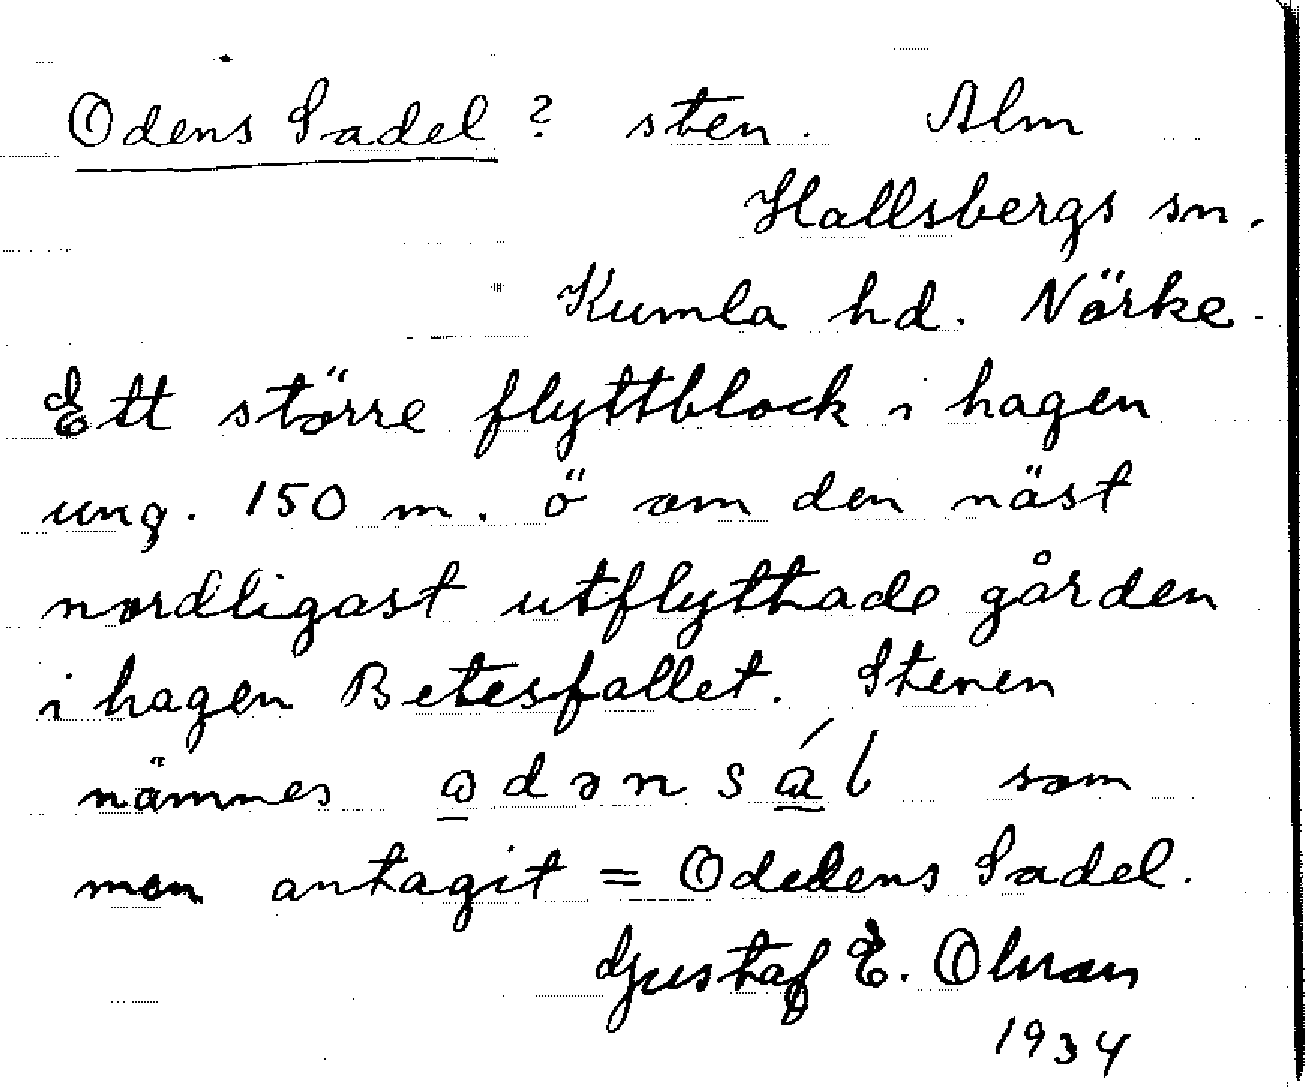 Odens Sadel ? sten. Alm
Hallsbergs sn.
Kumla hd. Närke.
Ett större flyttblock i hagen
ung. 150 m. ö om den näst
nordligast utflyttade gården
i hagen Betesfallet. Stenen
nämnes som
man antagit = Odens Sadel.
Gustaf E. Olsson
1934